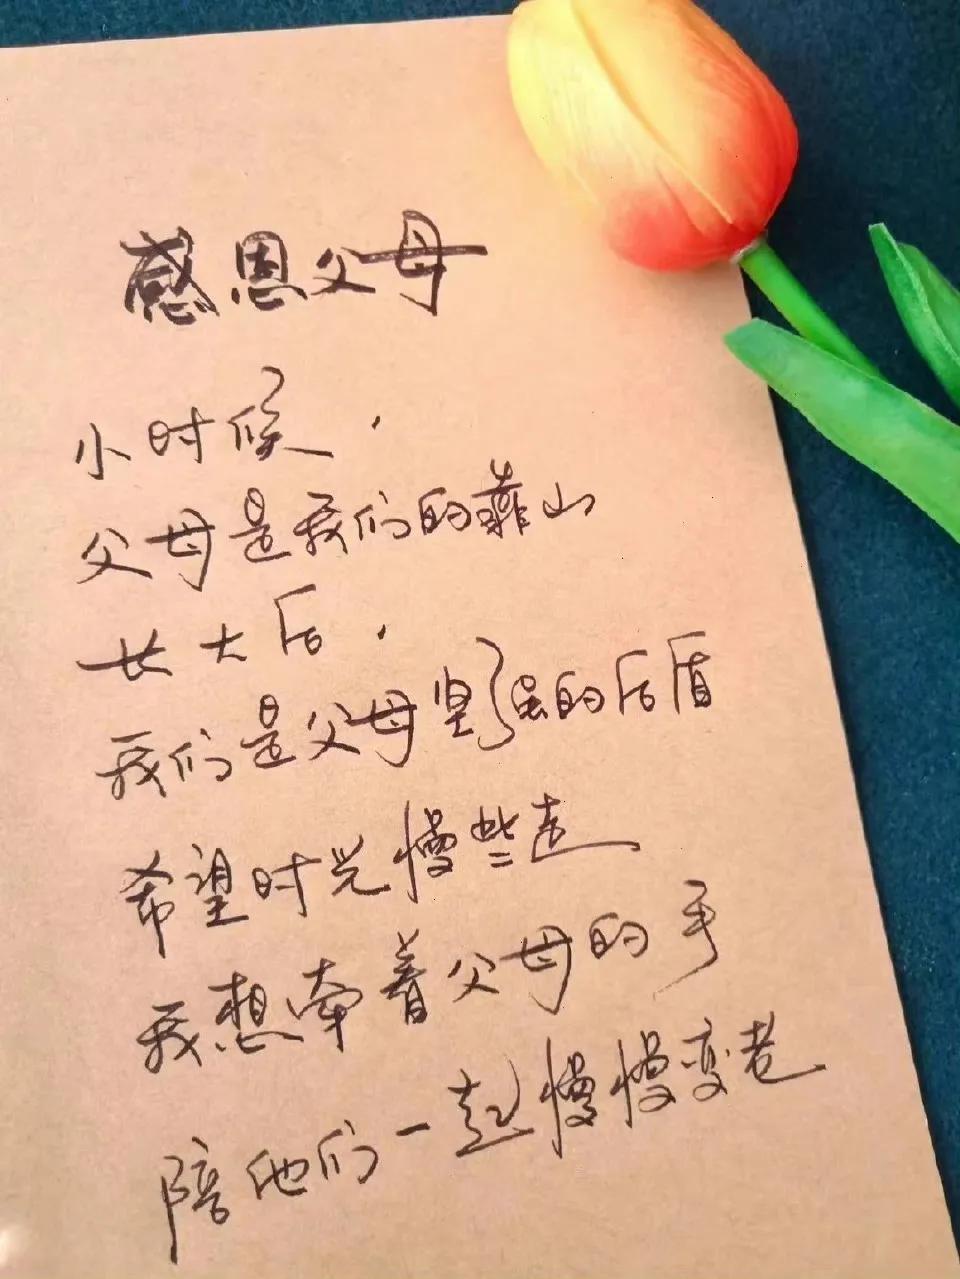 感恩父母
小时候,
父母是我们的靠山
长大后,
我们是父母坚强的后盾
希望时光慢些走
我想牵着父母的手
陪他们一起慢慢变老